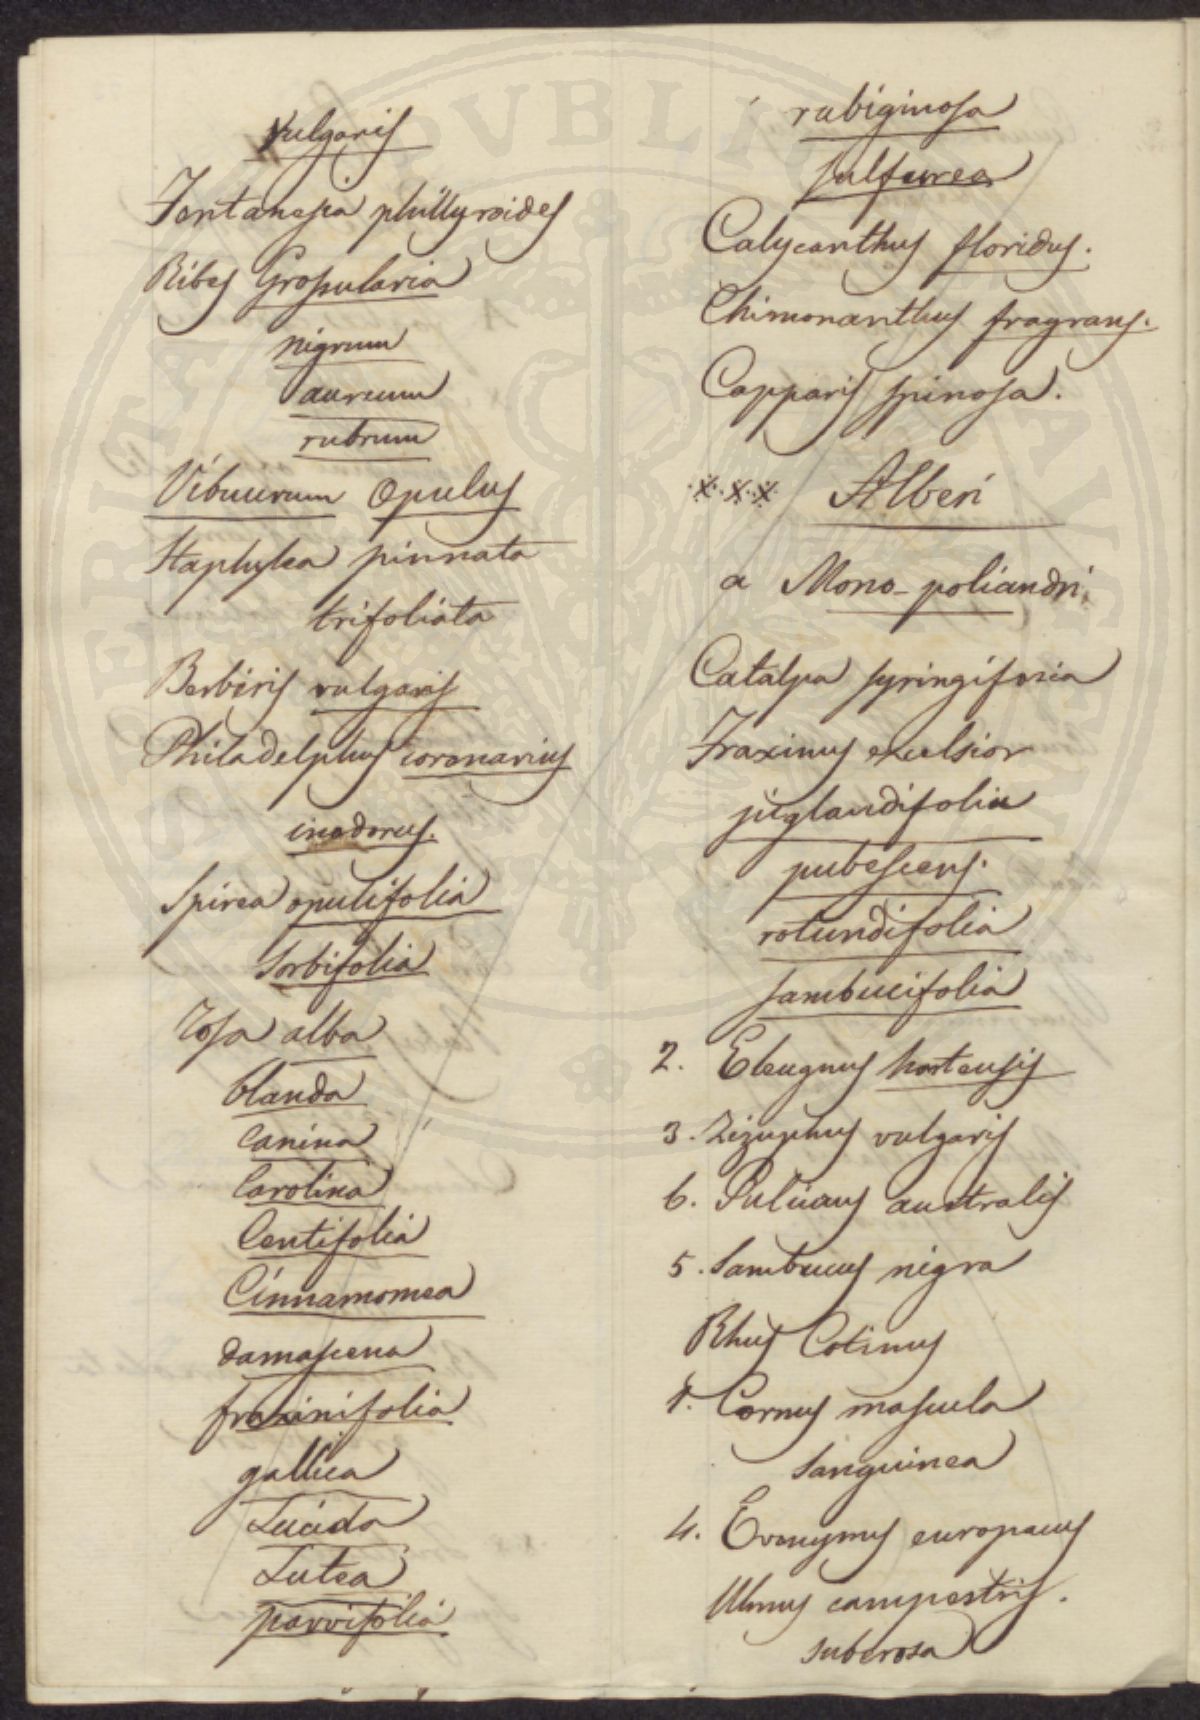 vulgaris
Fontanesia phillyroides
Ribes Grossularia
nigrum
aureum
rubrum
Viburnum Opulus
Staphylea pinnata
trifoliata
Berberis vulgaris
Philadelphus coronarius
inodorus.
Spirea opulifolia
Sorbifolia
Rosa alba
blanda
Canina
Carolina
Centifolia
Cinnamomea
damascena
fraxinifolia
gallica
Lucida
Lutea
parvifolia
rubiginosa
sulfurea
Calycanthus floridus.
Chimonanthus fragrans.
Capparis spinosa.
·x·x·x· Alberi
a Mono-poliandri
Catalpa syringiforia
Fraxinus excelsior
juglandifolia
pubescens.
rotundifolia
sambucifolia
2. Eleagnus hortensis
3. Zizuphus vulgaris
6. australis
5. Sambucus nigra
Rhus Cotinus
1. Cornus mascula
Sanguinea
4. Evonymus europaeus
Ulmus campestris.
suberosa